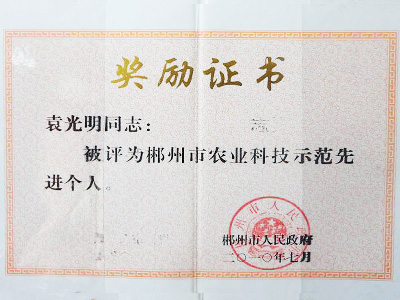 奖励证书
袁光明同志：
被评为郴州市农业科技示范先
进个人。
郴州市人民政府
二〇一〇年七月